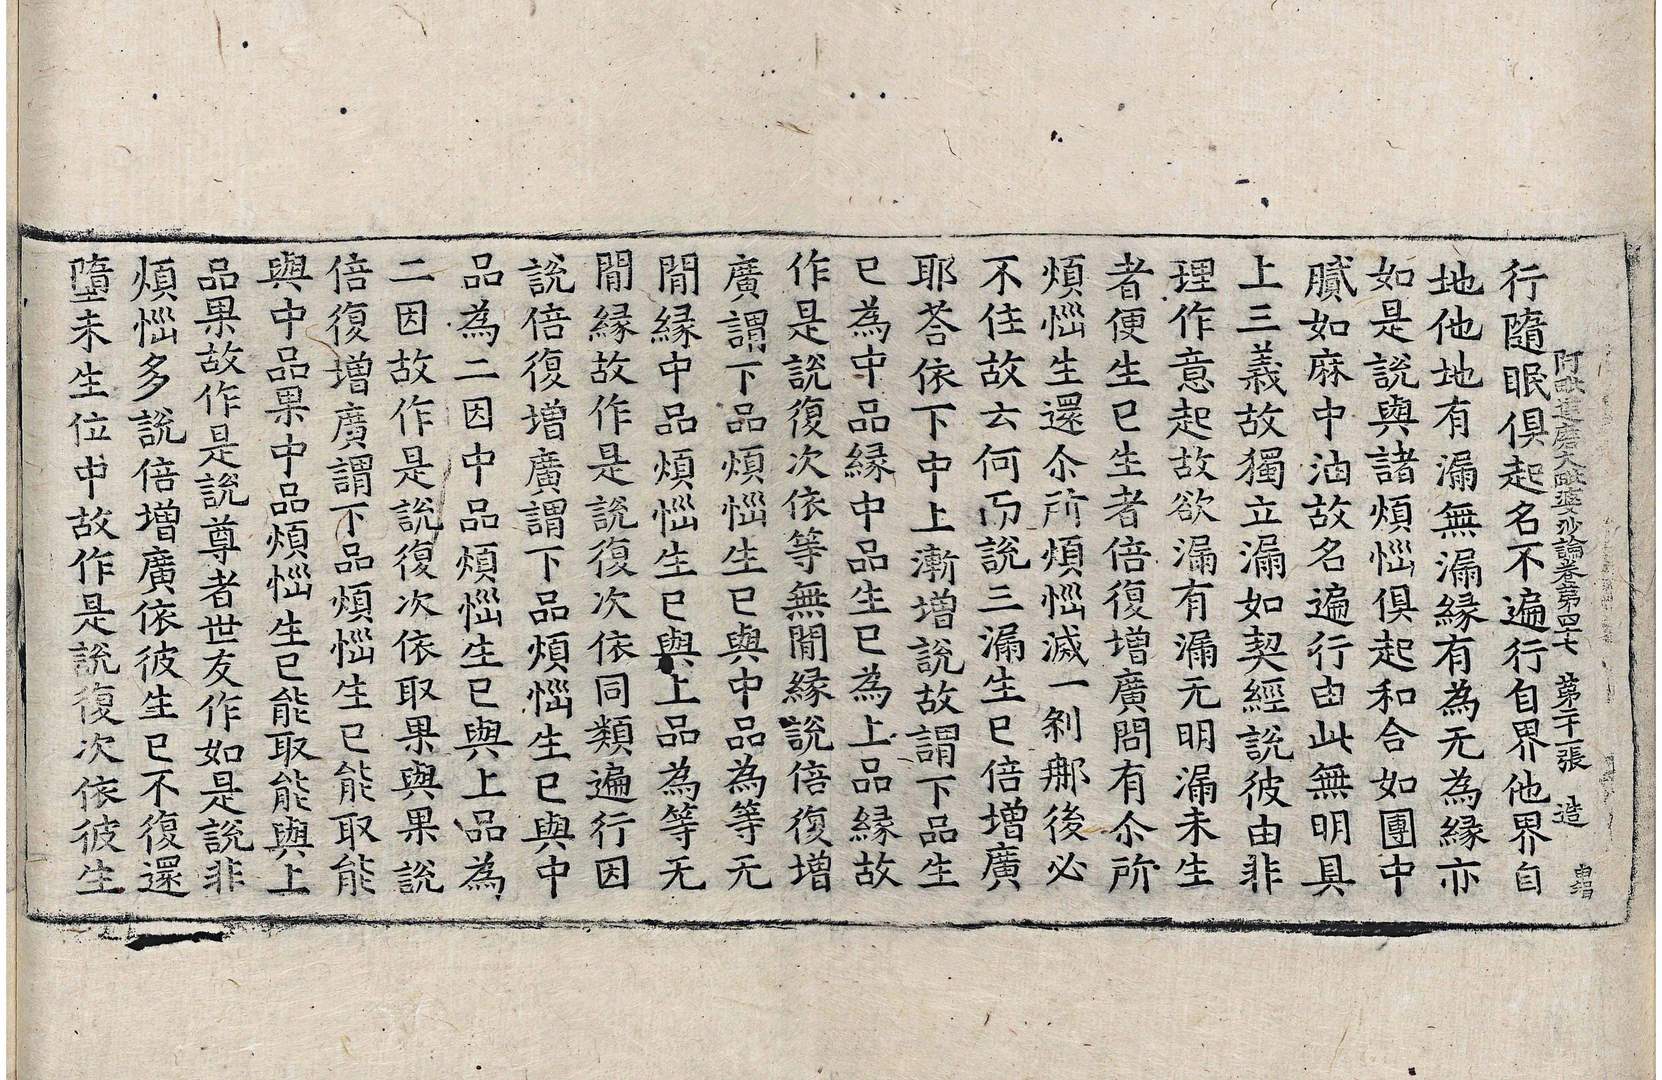 阿毗達磨大毗婆沙論卷第四十七 第二十一張 造
行隨眠俱起名不遍行自界他界自
地他地有漏無漏緣有為无為緣亦
如是說與諸煩惱俱起和合如團中
膩如麻中油故名遍行由此無明具
上三義故獨立漏如契經說彼由非
理作意起故欲漏有漏无明漏未生
者便生已生者倍復增廣問有尒所
煩惱生還尒所煩惱滅一剎那後必
不住故云何而說三漏生已倍增廣
耶荅依下中上漸增說故謂下品生
已為中品緣中品生已為上品緣故
作是說復次依等無閒緣說倍復增
廣謂下品煩惱生已與中品為等无
閒緣中品煩惱生已與上品為等无
閒緣故作是說復次依同類遍行因
說倍復增廣謂下品煩惱生已與中
品為二因中品煩惱生已與上品為
二因故作是說復次依取果與果說
倍復增廣謂下品煩惱生已能取能
與中品果中品煩惱生已能取能與上
品果故作是說尊者世友作如是說非
煩惱多說倍增廣依彼生已不復還
墮未生位中故作是說復次依彼生